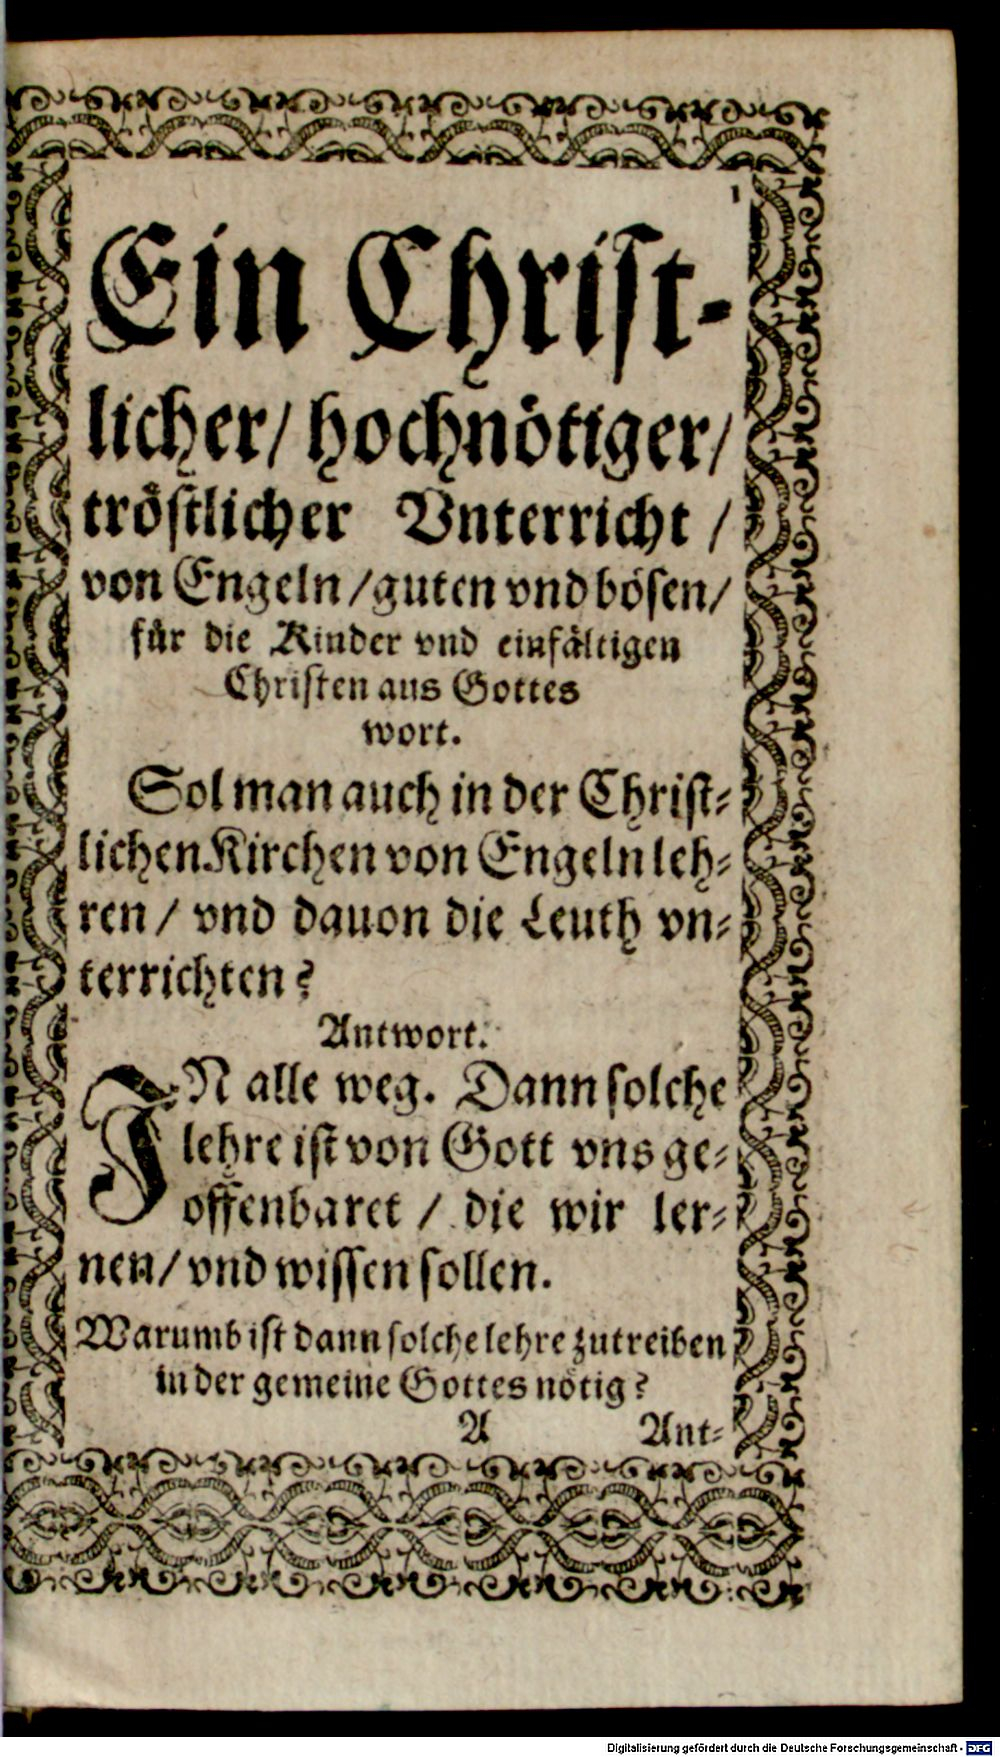 1
Ein Christ-
licher/ hochnötiger/
tröstlicher Vnterricht /
von Engeln /guten vnd bösen/
für die Kinder vnd einfältigen
Christen aus Gottes
wort.
Sol man auch in der Christ-
lichen Kirchen von Engeln leh-
ren / vnd dauon die Leuth vn-
terrichten?
Antwort.
IN alle weg. Dann solche
lehre ist von Gott vns ge-
offenbaret / die wir ler-
nen/ vnd wissen sollen.
Warumb ist dann solche lehre zutreiben
in der gemeine Gottes nötig?
A Ant-
Digitalisierung gefördert durch die Deutsche Forschungsgemeinschaft - DFG